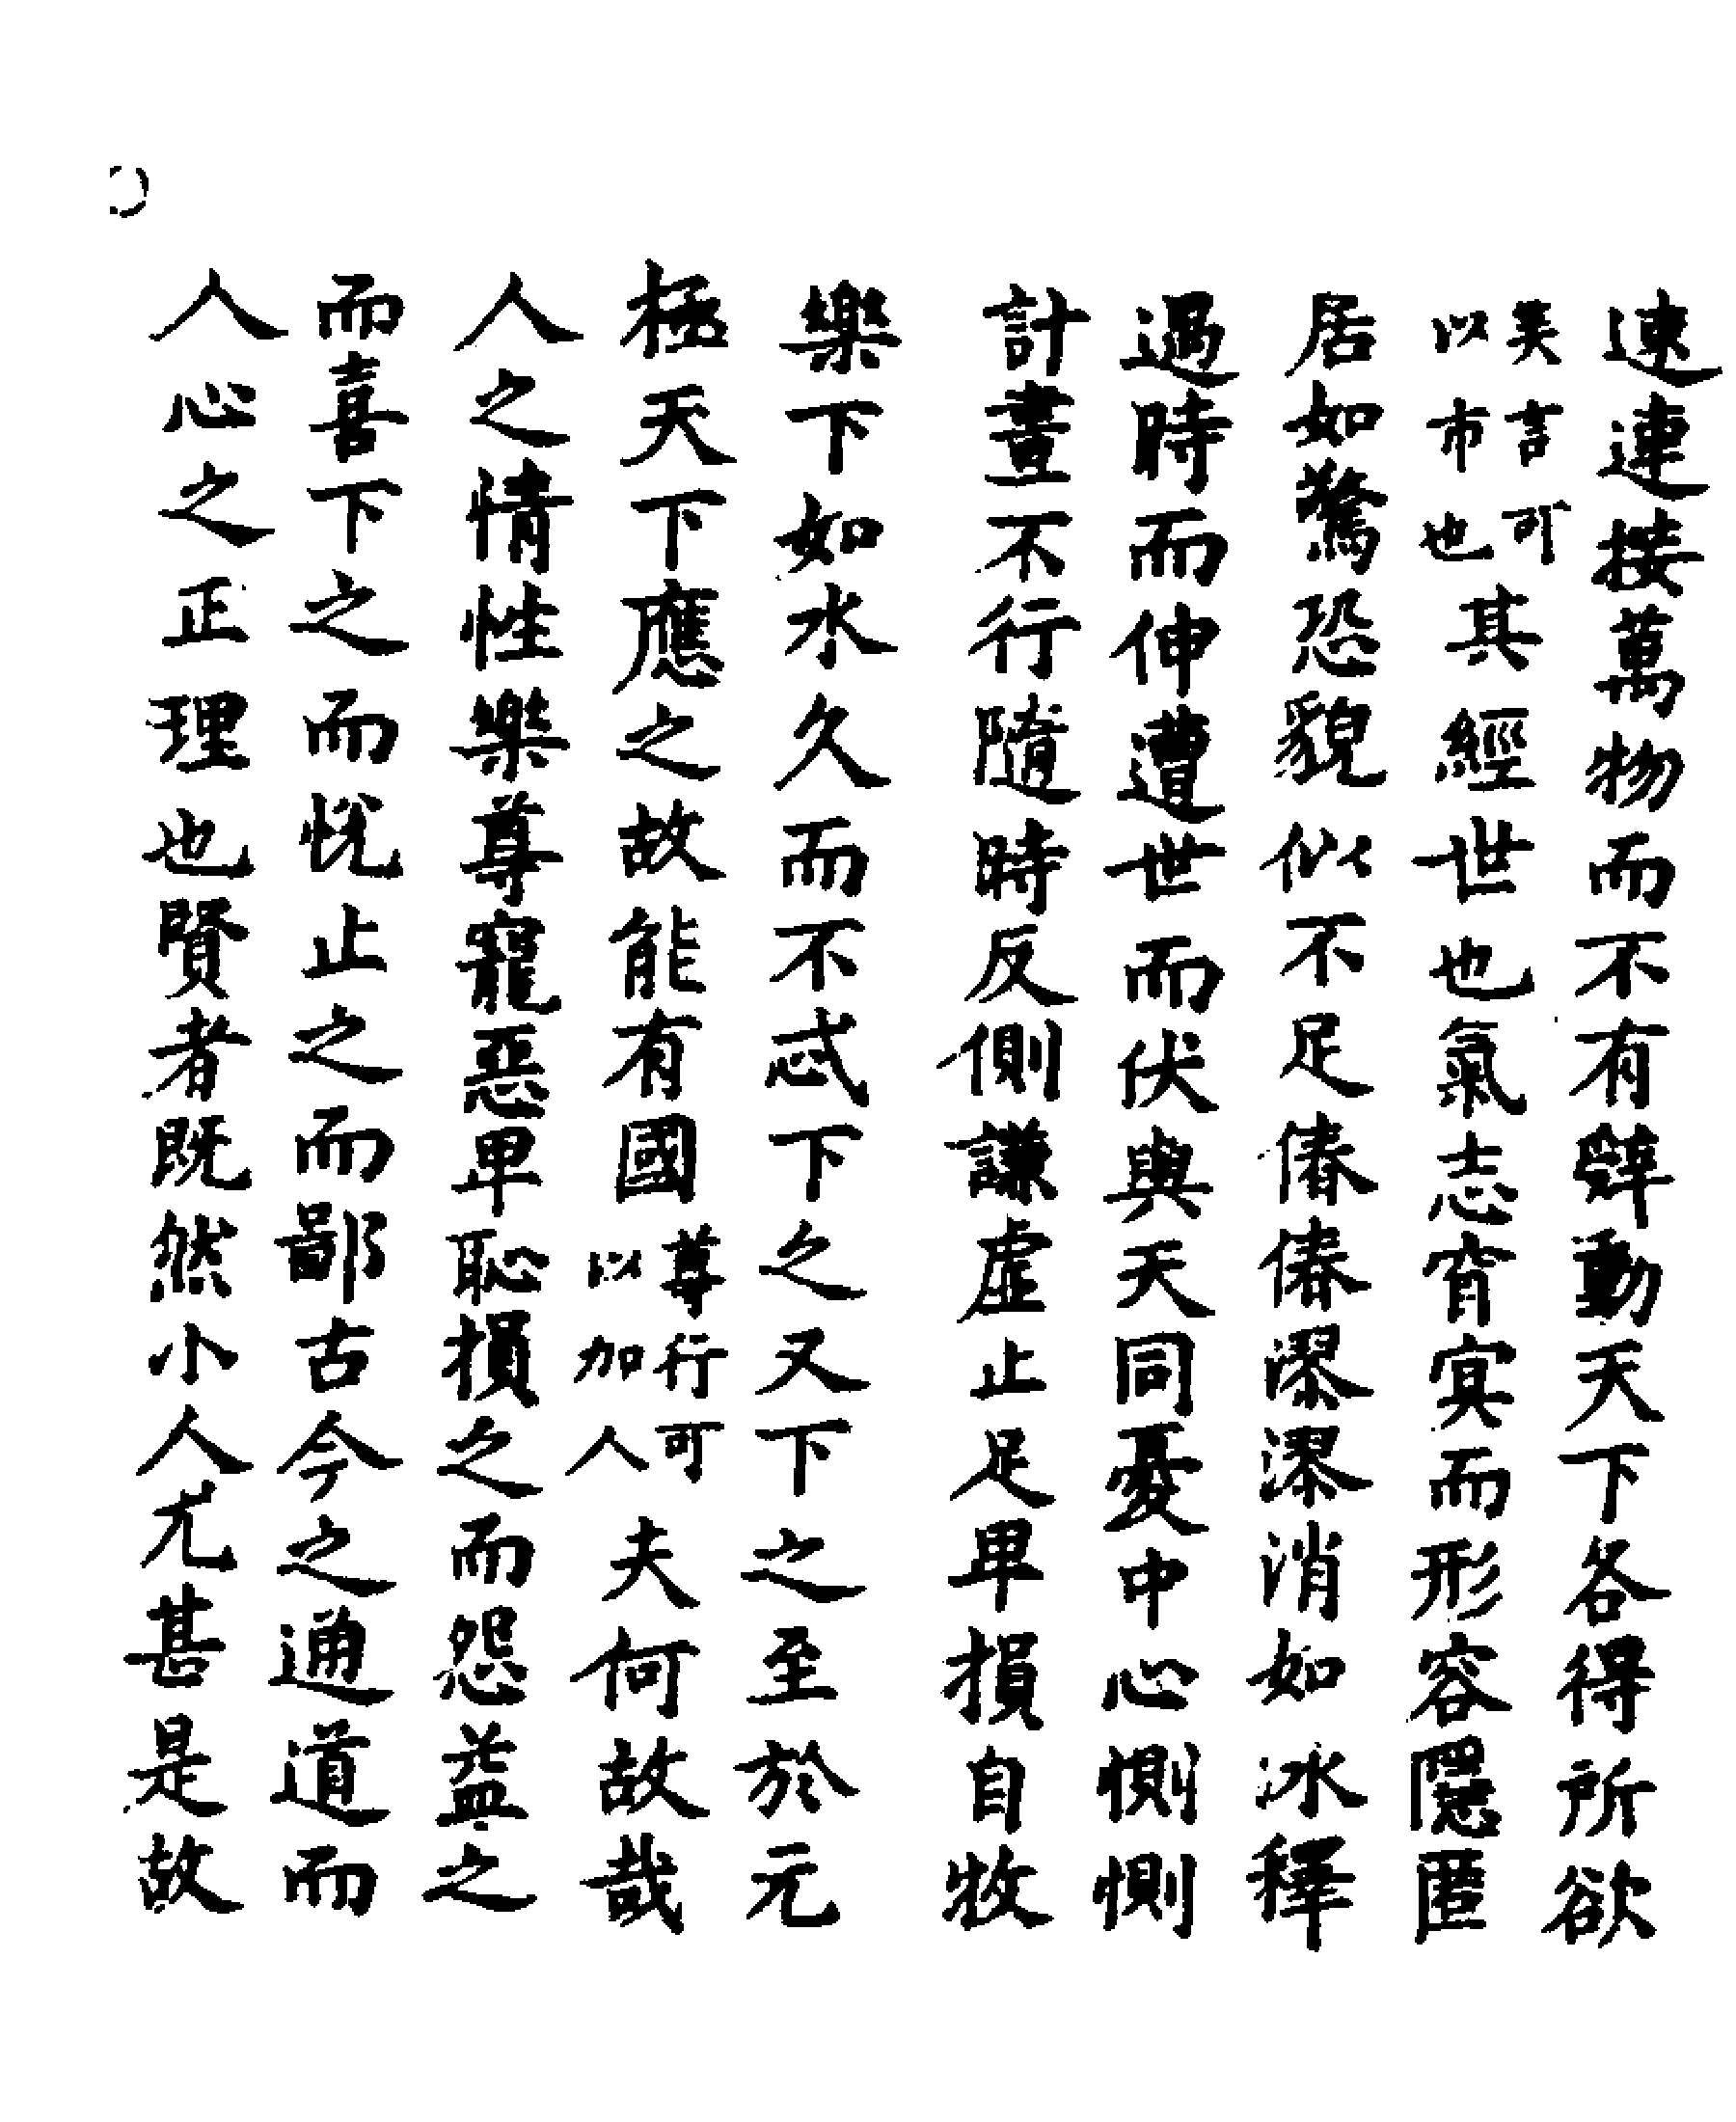 連連接萬物而不有辭動天下各得所欲
美言可以市也其經世也氣志窅冥而形容隱匿
居如驚恐貌似不足偆偆漻漻消如冰釋
遇時而伸遭世而伏與天同憂中心惻惻
計畫不行隨時反側謙虛止足卑損自牧
樂下如水久而不忒下之又下之至於元
極天下應之故能有國尊行可以加人夫何故哉
人之情性樂尊寵惡卑恥損之而怨益之
而喜下之而悅止之而鄙古今之通道而
人心之正理也賢者既然小人尤甚是故